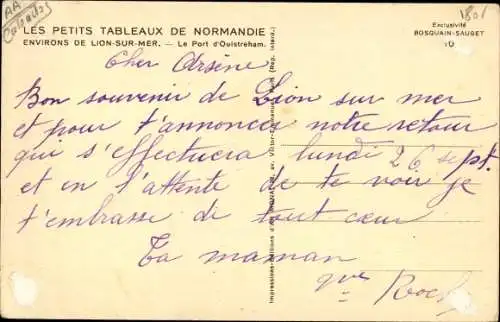 AA
Calvados
1801
LES PETITS TABLEAUX DE NORMANDIE
ENVIRONS DE LION-SUR-MER. — Le Port d'Ouistreham.
Exclusivité
BOSQUAIN-SAUGET
10
Cher Arsène
Bon souvenir de Lion sur mer
et pour t'annoncer notre retour
qui s'effectuera lundi 26 sept.
et en l'attente de te voir je
t'embrasse de tout cœur
Ta maman
Impressions-Editions d'Art
av. Victor-Emmanuel
(Rep. interd.)